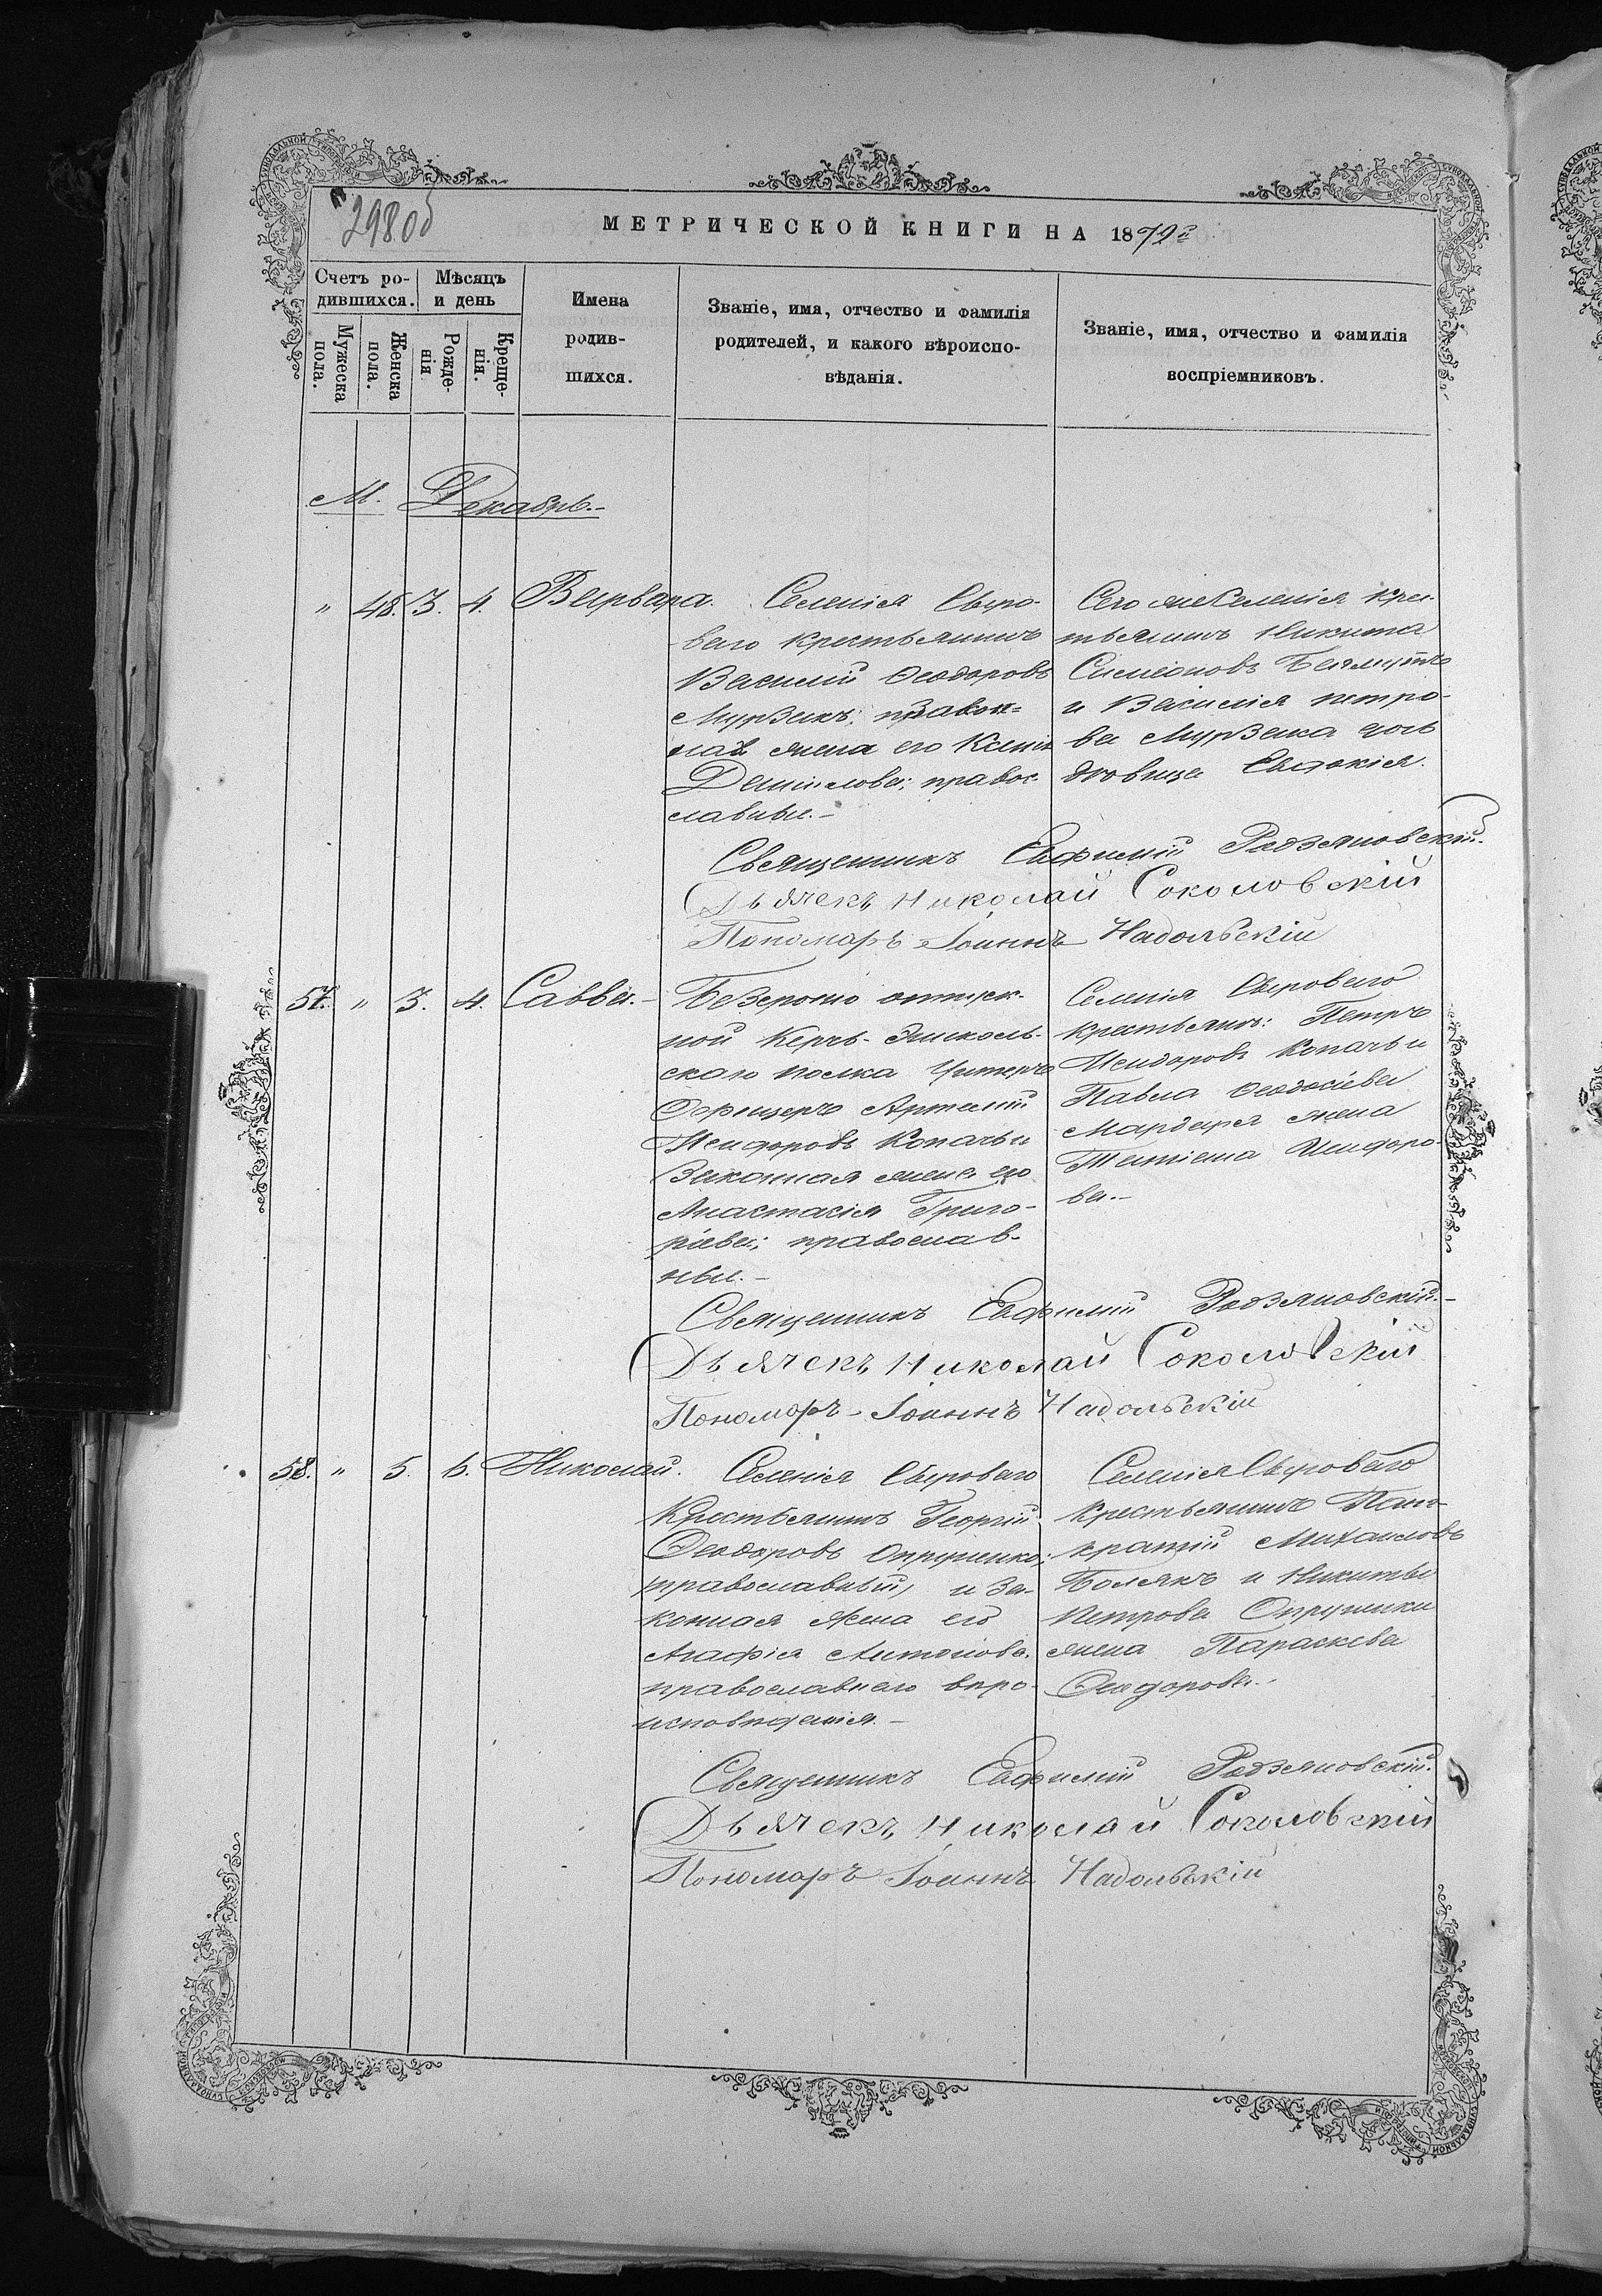 298об
МЕТРИЧЕСКОЙ КНИГИ НА 1872
Счетъ ро-
дившихся.
Мѣсяцъ
и день
Мужеска
пола.
Женска
пола.
Рожде-
нія
Креще-
нія.
Имена
родив-
шихся.
Званіе, имя, отчество и фамилія
родителей, и какого вѣроиспо-
вѣданія.
Званіе, имя, отчество и фамилія
воспріемниковъ.
М. Декабрь.-
" 48. 3. 4. Варвара.
Селенія Сыро-
ваго крестьянинъ
Василій Ѳеодоровъ
Мурзакъ;
жена его
Даниилова; правос
лавные.-
Сего же Селенія крес
тьянинъ Никита
Симеоновъ
и Василія Петро-
ва Мурзака дочь
дѣвица Евдокія.
Священникъ Евфимій Родзяновскій.
Дьячекъ Николай Соколовскій
Пономарь Іоаннъ Надольскій
57. " 3. 4. Савва.-
Безсрочно отпуск-
ной Керчь-Эникольс-
скаго полка Унтеръ
Офицеръ Артемій
Исидоровъ Копачь и
Законная жена его
Анастасія Григо-
ріева; православ-
ные.-
Селенія Сыроваго
крестьяне: Петръ
Исидоровъ Копачь и
Павла Ѳеодосіева
жена
Татіана Исидоро-
ва.-
Священникъ Евфимій Родзяновскій.-
Дьячекъ Николай Соколовскій
Пономарь Іоаннъ Надольскій
58. " 5. 6. Николай.
Селенія Сыроваго
Крестьянинъ Георгій
Ѳеодоровъ Опрушко;
православный, и За-
конная Жена его
Агафія Антонова,
православнаго вѣро-
исповѣданія.-
Селенія Сыроваго
Крестьянинъ Пан-
кратій Михаиловъ
Болякъ и Никиты
Петрова Опрушки
жена Параскева
Ѳеодорова.
Священникъ Евфимій Родзяновскій.
Дьячекъ Николай Соколовскій
Пономарь Іоаннъ Надольскій